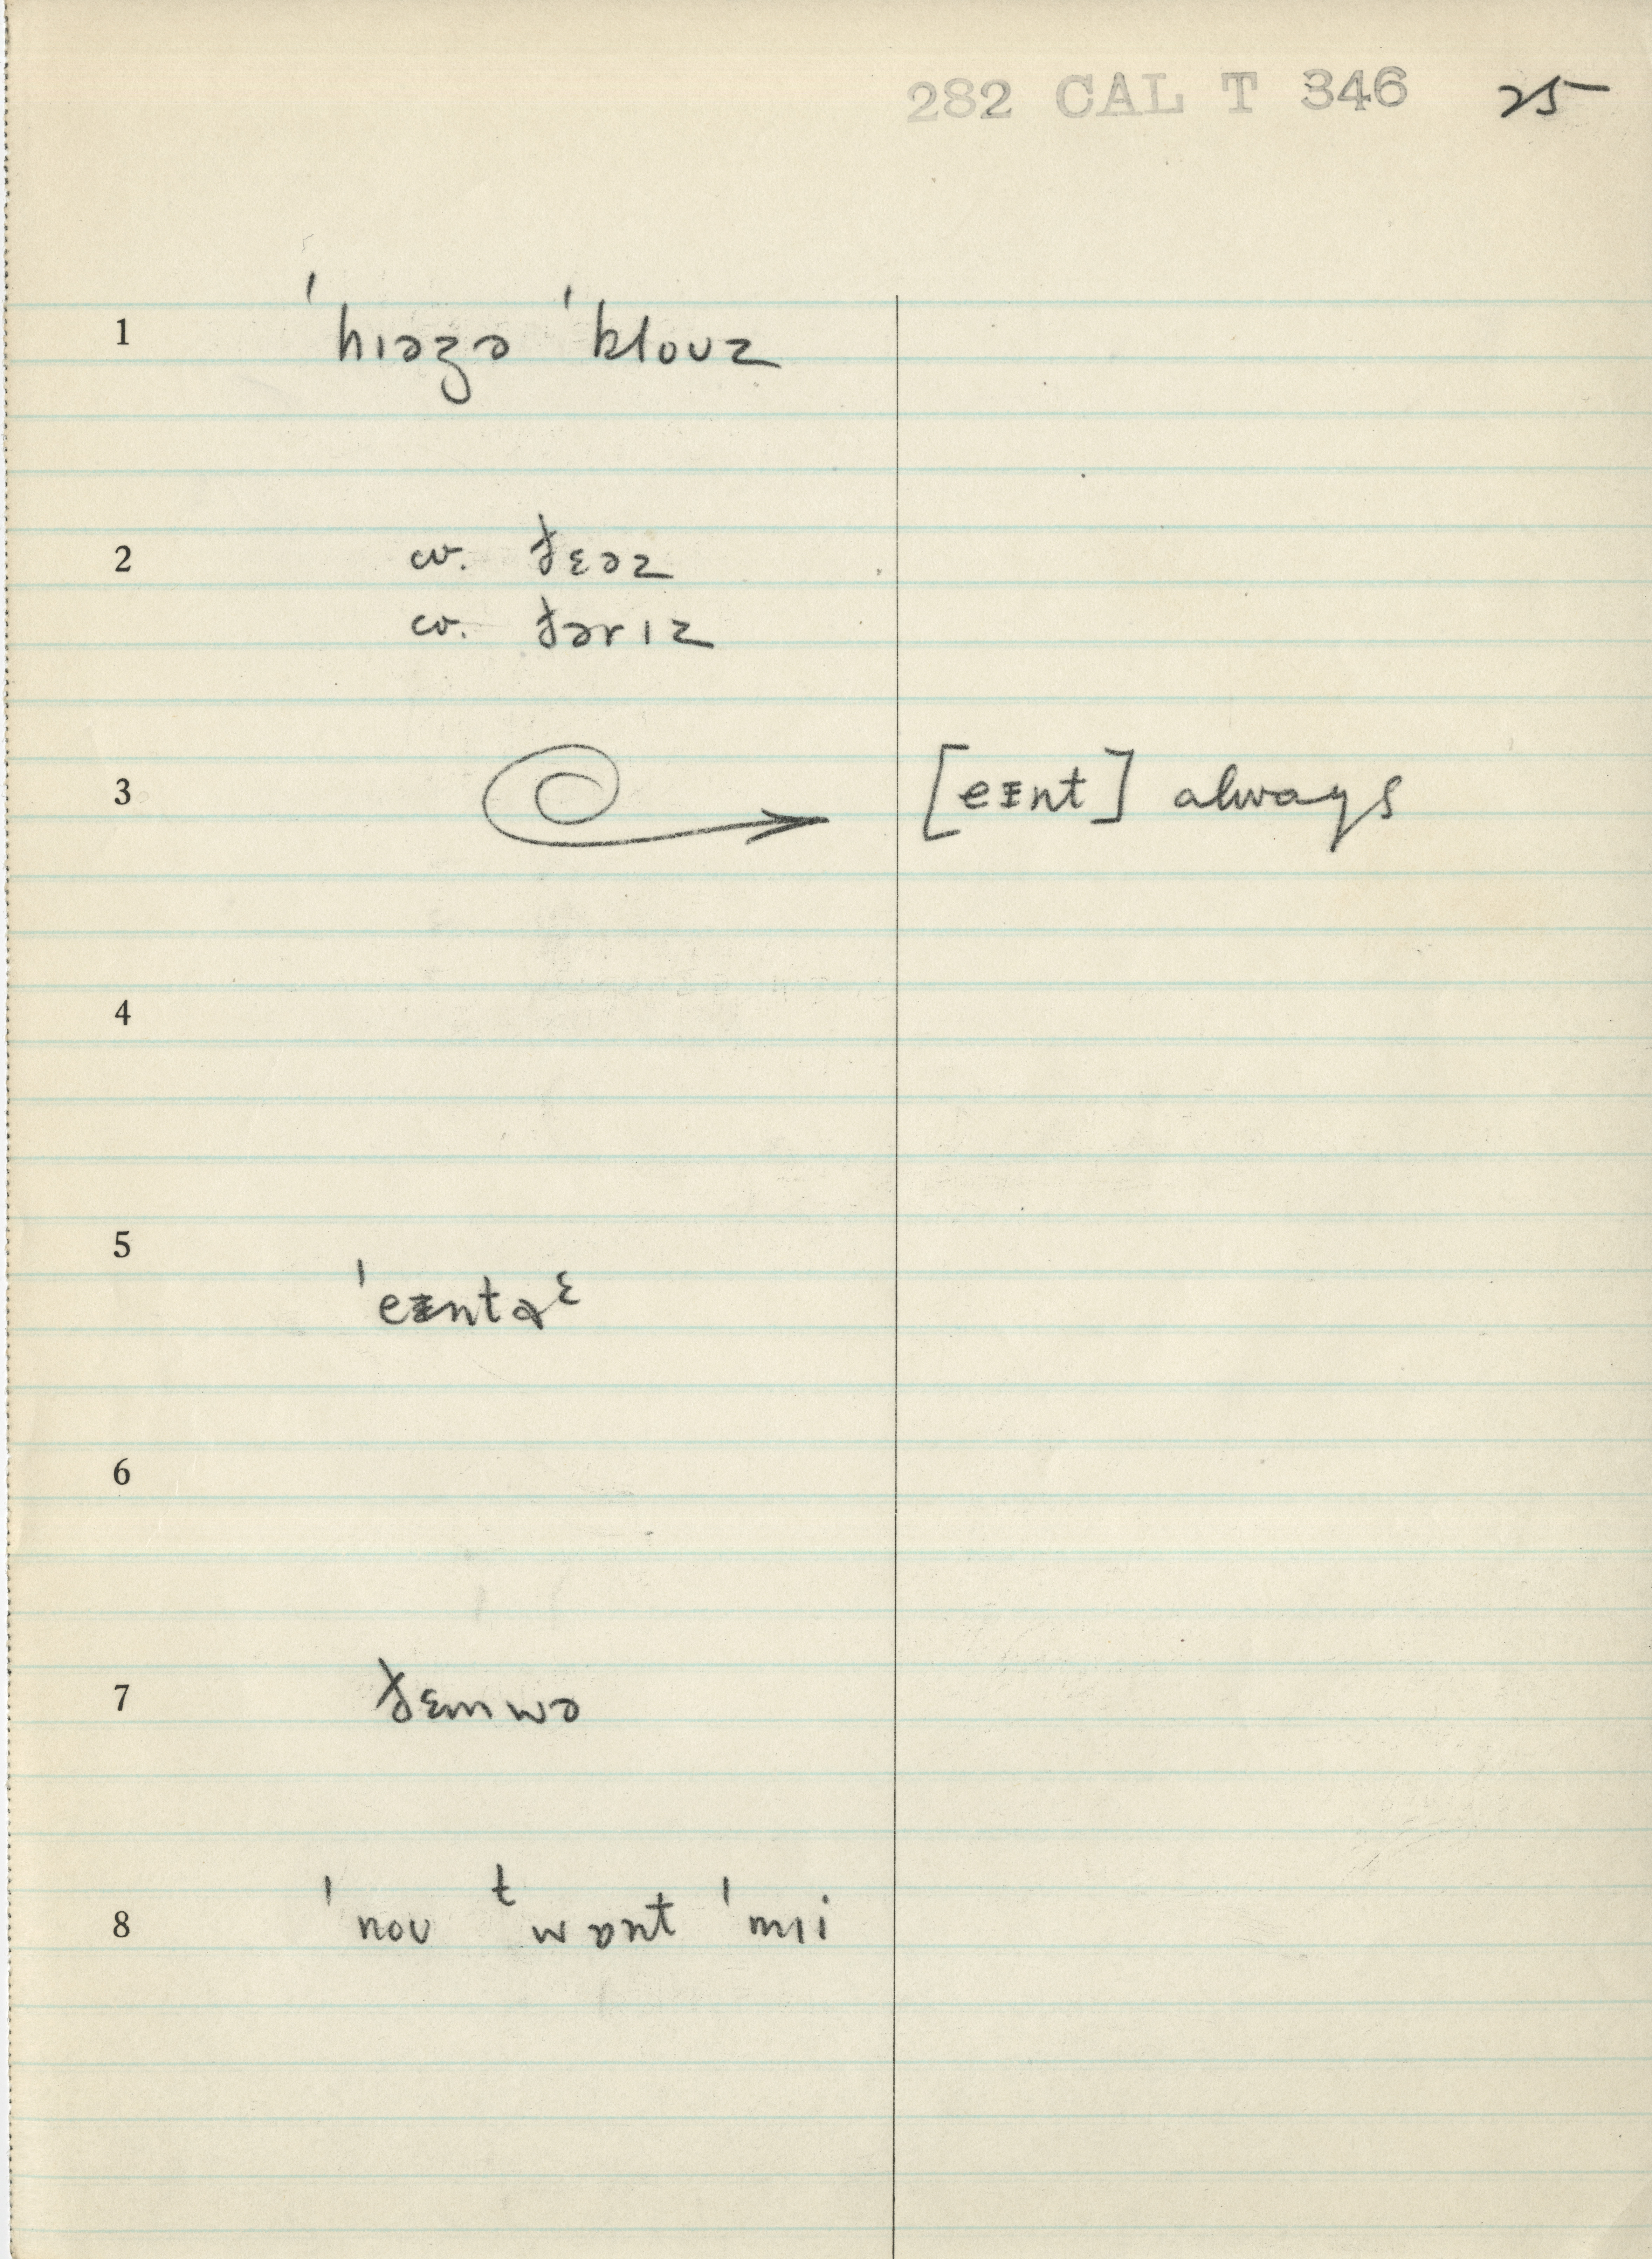 282 CAL T 346 25
1 ˈhɪəzə ˈkloʊz
2 cv. ðɛəz
cv. ðərɪz
3 [eɪnt] always
4
5 ˈeɪntɚᵋ
6
7 ðɛmwə
8 ˈnoʊ ᵗwɒnt ˈmɪi